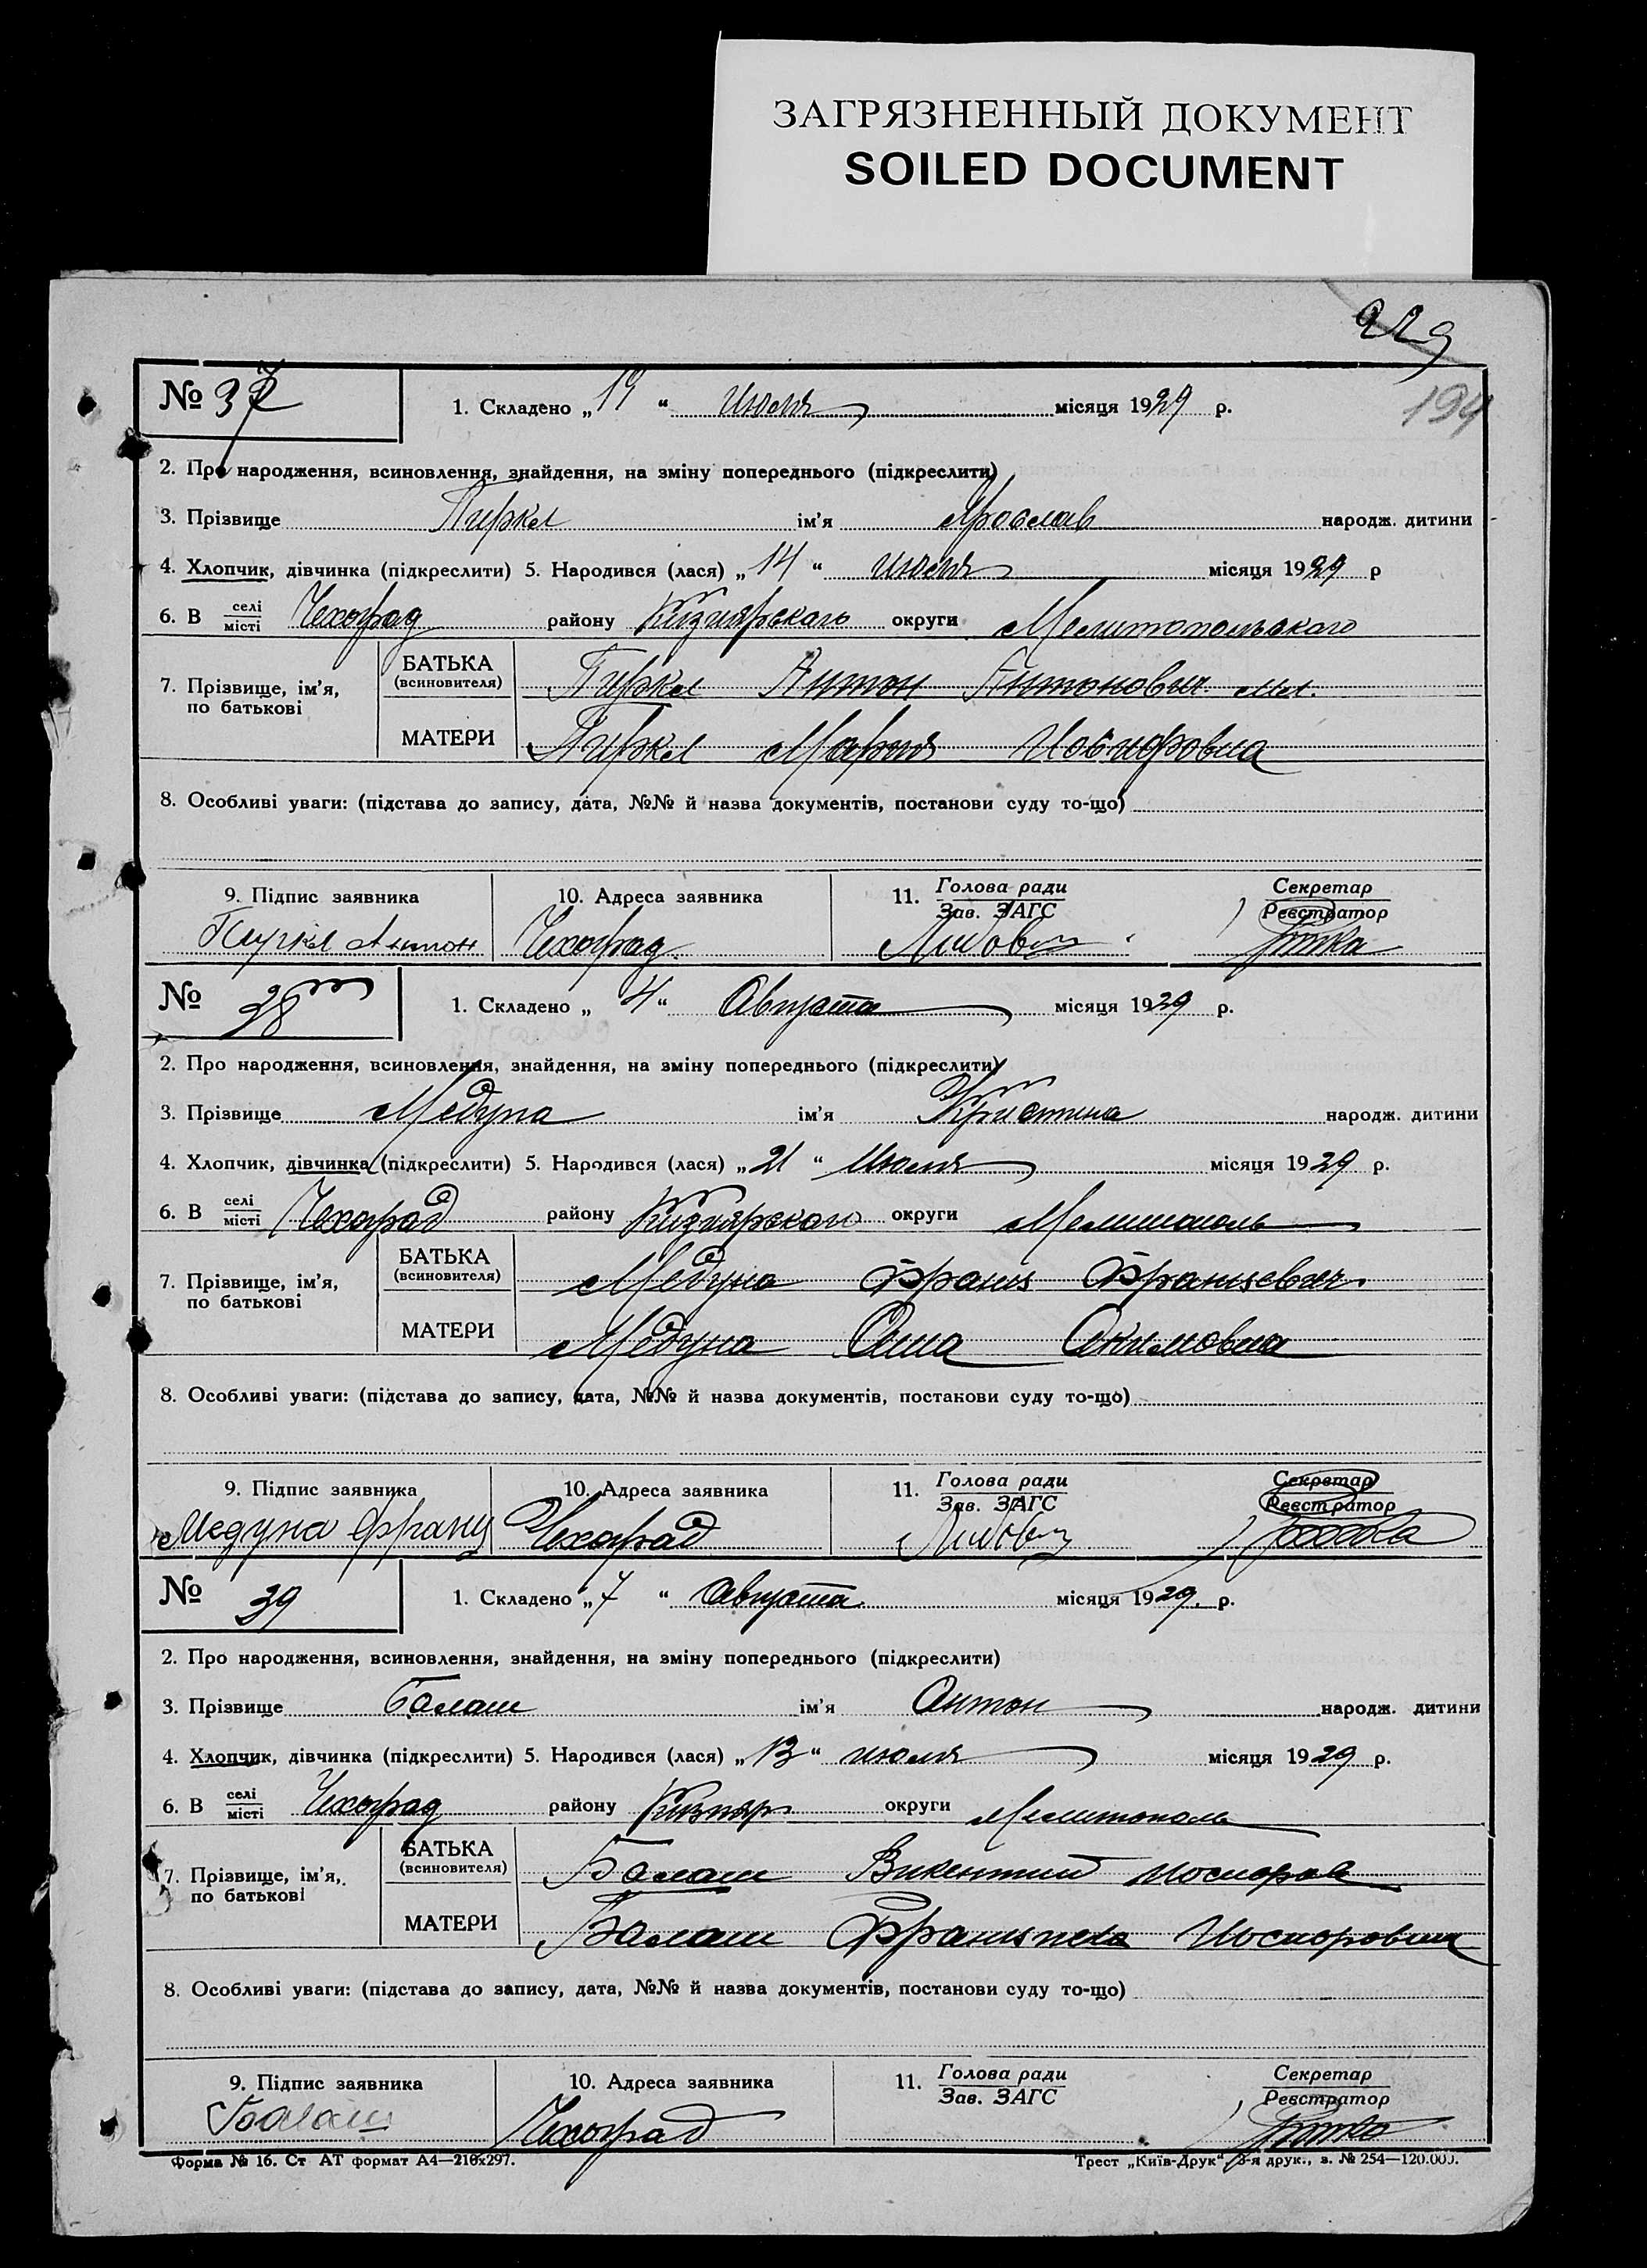 ЗАГРЯЗНЕННЫЙ ДОКУМЕНТ
SOILED DOCUMENT
229
194
№ 37 1. Складено „19“ Июля місяця 1929 р.
2. Про народження, всиновлення, знайдення, на зміну попереднього (підкреслити)
3. Прізвище Пиркл ім'я Ярослав народж. дитини
4. Хлопчик, дівчинка (підкреслити) 5. Народився (лася) „14“ Июля місяця 1929 р
6. В селі/місті Чехоград району Кизиярского округи Мелитопольского
7. Прізвище, ім'я, по батькові БАТЬКА (всиновителя) Пиркл Антон Антонович мл.
МАТЕРИ Пиркл Мария Иосифовна
8. Особливі уваги: (підстава до запису, дата, №№ й назва документів, постанови суду то-що)
9. Підпис заявника 10. Адреса заявника 11. Голова ради/Зав. ЗАГС Секретар/Реєстратор
Пиркл Антон Чехоград
№ 38 1. Складено „4“ Августа місяця 1929 р.
2. Про народження, всиновлення, знайдення, на зміну попереднього (підкреслити)
3. Прізвище Медуна ім'я Христина народж. дитини
4. Хлопчик, дівчинка (підкреслити) 5. Народився (лася) „21“ Июля місяця 1929 р.
6. В селі/місті Чехоград району Кизиярского округи Мелитополь
7. Прізвище, ім'я, по батькові БАТЬКА (всиновителя) Медуна Франц Францевич.
МАТЕРИ Медуна Анна Акимовна
8. Особливі уваги: (підстава до запису, дата, №№ й назва документів, постанови суду то-що)
9. Підпис заявника 10. Адреса заявника 11. Голова ради/Зав. ЗАГС Секретар/Реєстратор
Медуна Франц Чехоград
№ 39 1. Складено „7“ Августа місяця 1929. р.
2. Про народження, всиновлення, знайдення, на зміну попереднього (підкреслити)
3. Прізвище Балаш ім'я Антон народж. дитини
4. Хлопчик, дівчинка (підкреслити) 5. Народився (лася) „13“ июля місяця 1929 р.
6. В селі/місті Чехоград району Кизияр округи Мелитополь
7. Прізвище, ім'я, по батькові БАТЬКА (всиновителя) Балаш Викентий Иосифов
МАТЕРИ Балаш Францишка Иосифовна
8. Особливі уваги: (підстава до запису, дата, №№ й назва документів, постанови суду то-що)
9. Підпис заявника 10. Адреса заявника 11. Голова ради/Зав. ЗАГС Секретар/Реєстратор
Балаш Чехоград
Форма № 16. Ст АТ формат А4—210х297. Трест „Київ-Друк“, 3-я друк., з. № 254—120.000.